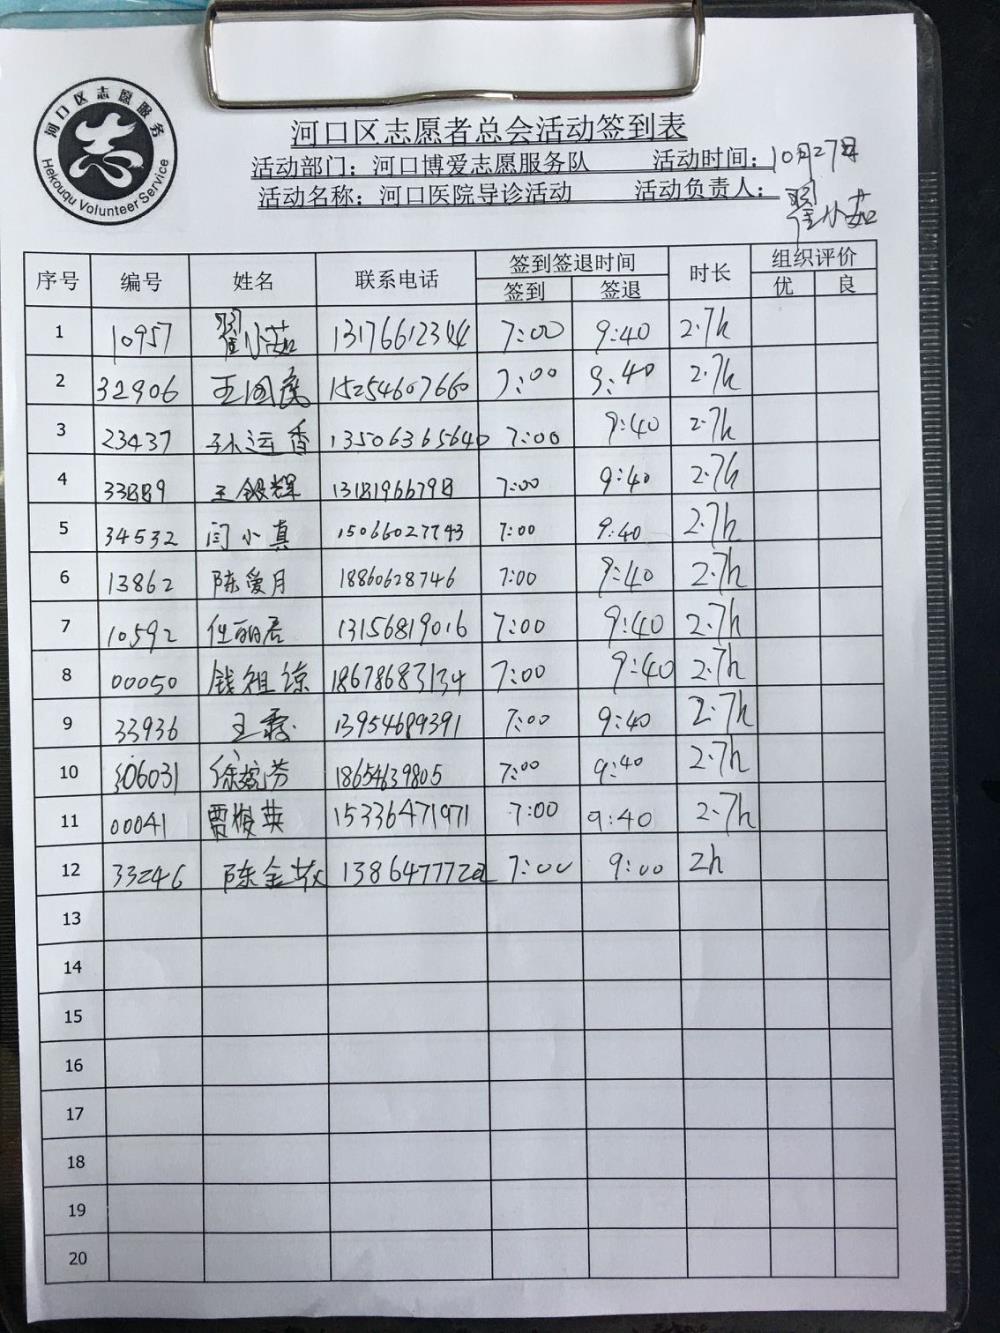 河口区志愿服务
志
Hekouqu Volunteer Service
河口区志愿者总会活动签到表
活动部门：河口博爱志愿服务队 活动时间：10月27日
活动名称：河口医院导诊活动 活动负责人：翟小茹
序号 编号 姓名 联系电话 签到签退时间 时长 组织评价
签到 签退 优 良
1 10957 翟小茹 13176612344 7:00 9:40 2.7h
2 32906 王国庆 15254607660 7:00 9:40 2.7h
3 23437 孙运香 13506365640 7:00 9:40 2.7h
4 王银辉 7:00 9:40 2.7h
5 34532 闫小真 15066027743 7:00 9:40 2.7h
6 13862 陈爱月 18860628746 7:00 9:40 2.7h
7 10592 任丽君 13156819016 7:00 9:40 2.7h
8 00050 钱祖谅 18678683134 7:00 9:40 2.7h
9 33936 王 13954689391 7:00 9:40 2.7h
10 06031 徐 芬 18654639805 7:00 9:40 2.7h
11 00041 贾俊英 15336471971 7:00 9:40 2.7h
12 33246 陈金 7:00 9:00 2h
13
14
15
16
17
18
19
20